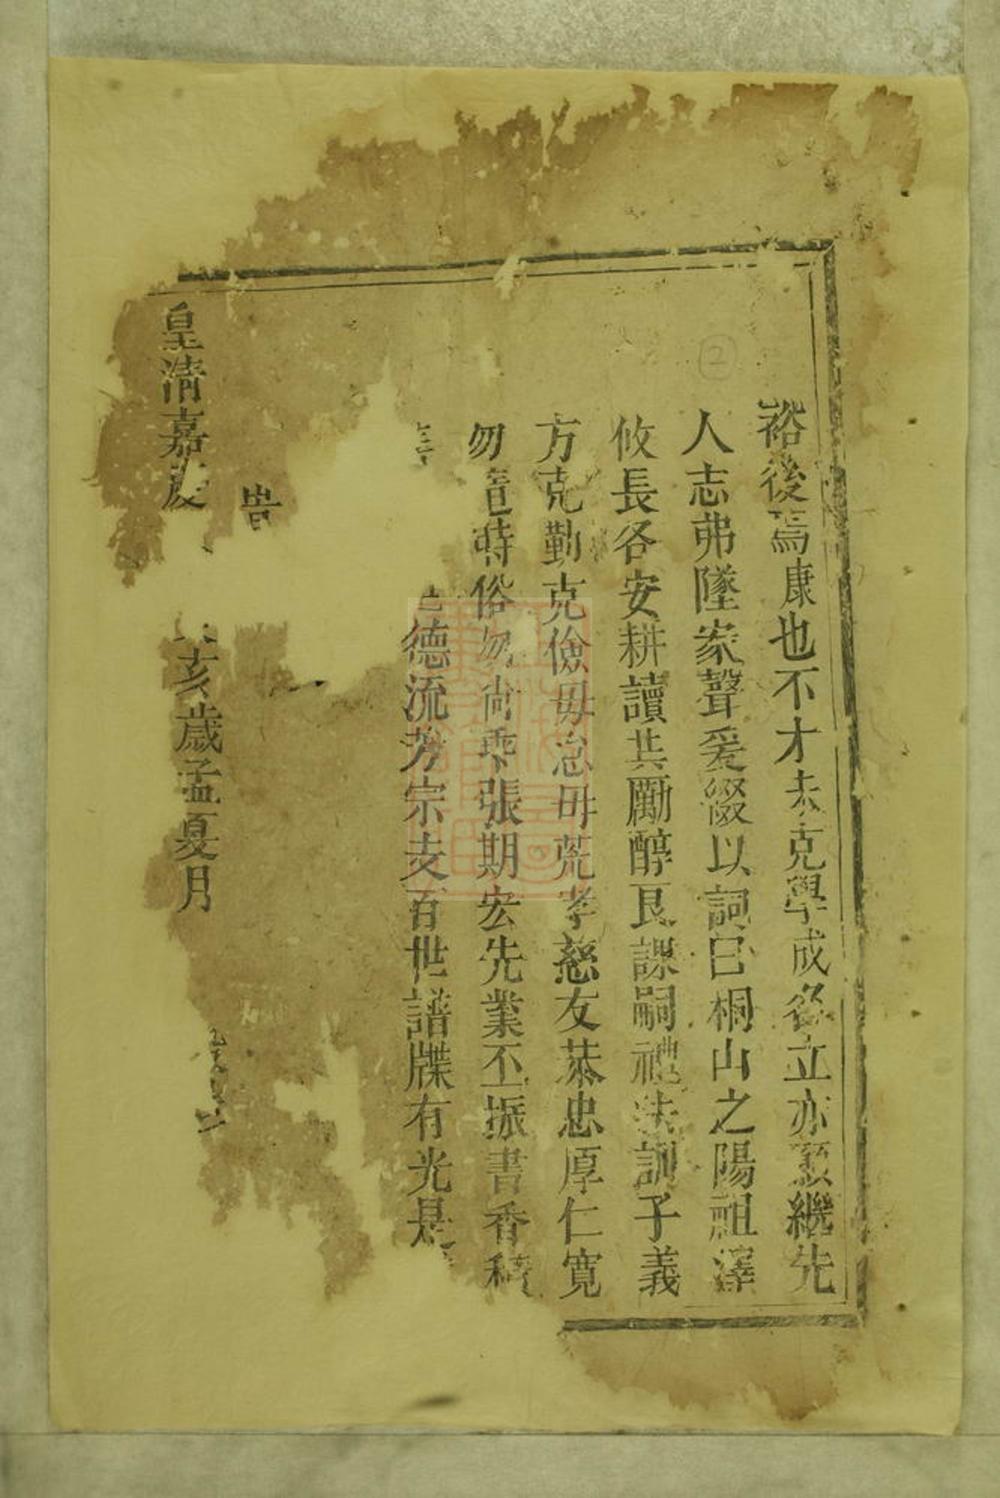 ②
裕後焉康也不才未克學成名立亦愿繼先
人志弗墜家聲爰綴以詞曰桐山之陽祖澤
攸長各安耕讀共勵醇良課嗣禮法訓子義
方克勤克儉毋怠毋荒孝慈友恭忠厚仁寬
勿時俗勿尚乖張期宏先業丕振書香
德流芳宗支百世譜牒有光是
旹
皇清嘉慶亥歲孟夏月